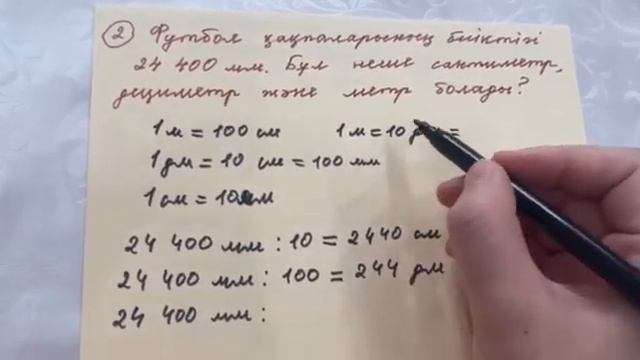 ② Футбол қақпаларының биіктігі
24 400 мм. Бұл неше сантиметр,
дециметр және метр болады?
1 м = 100 см 1 м = 10 дм =
1 дм = 10 см = 100 мм
1 см = 10 мм
24 400 мм : 10 = 2440 см
24 400 мм : 100 = 244 дм
24 400 мм :